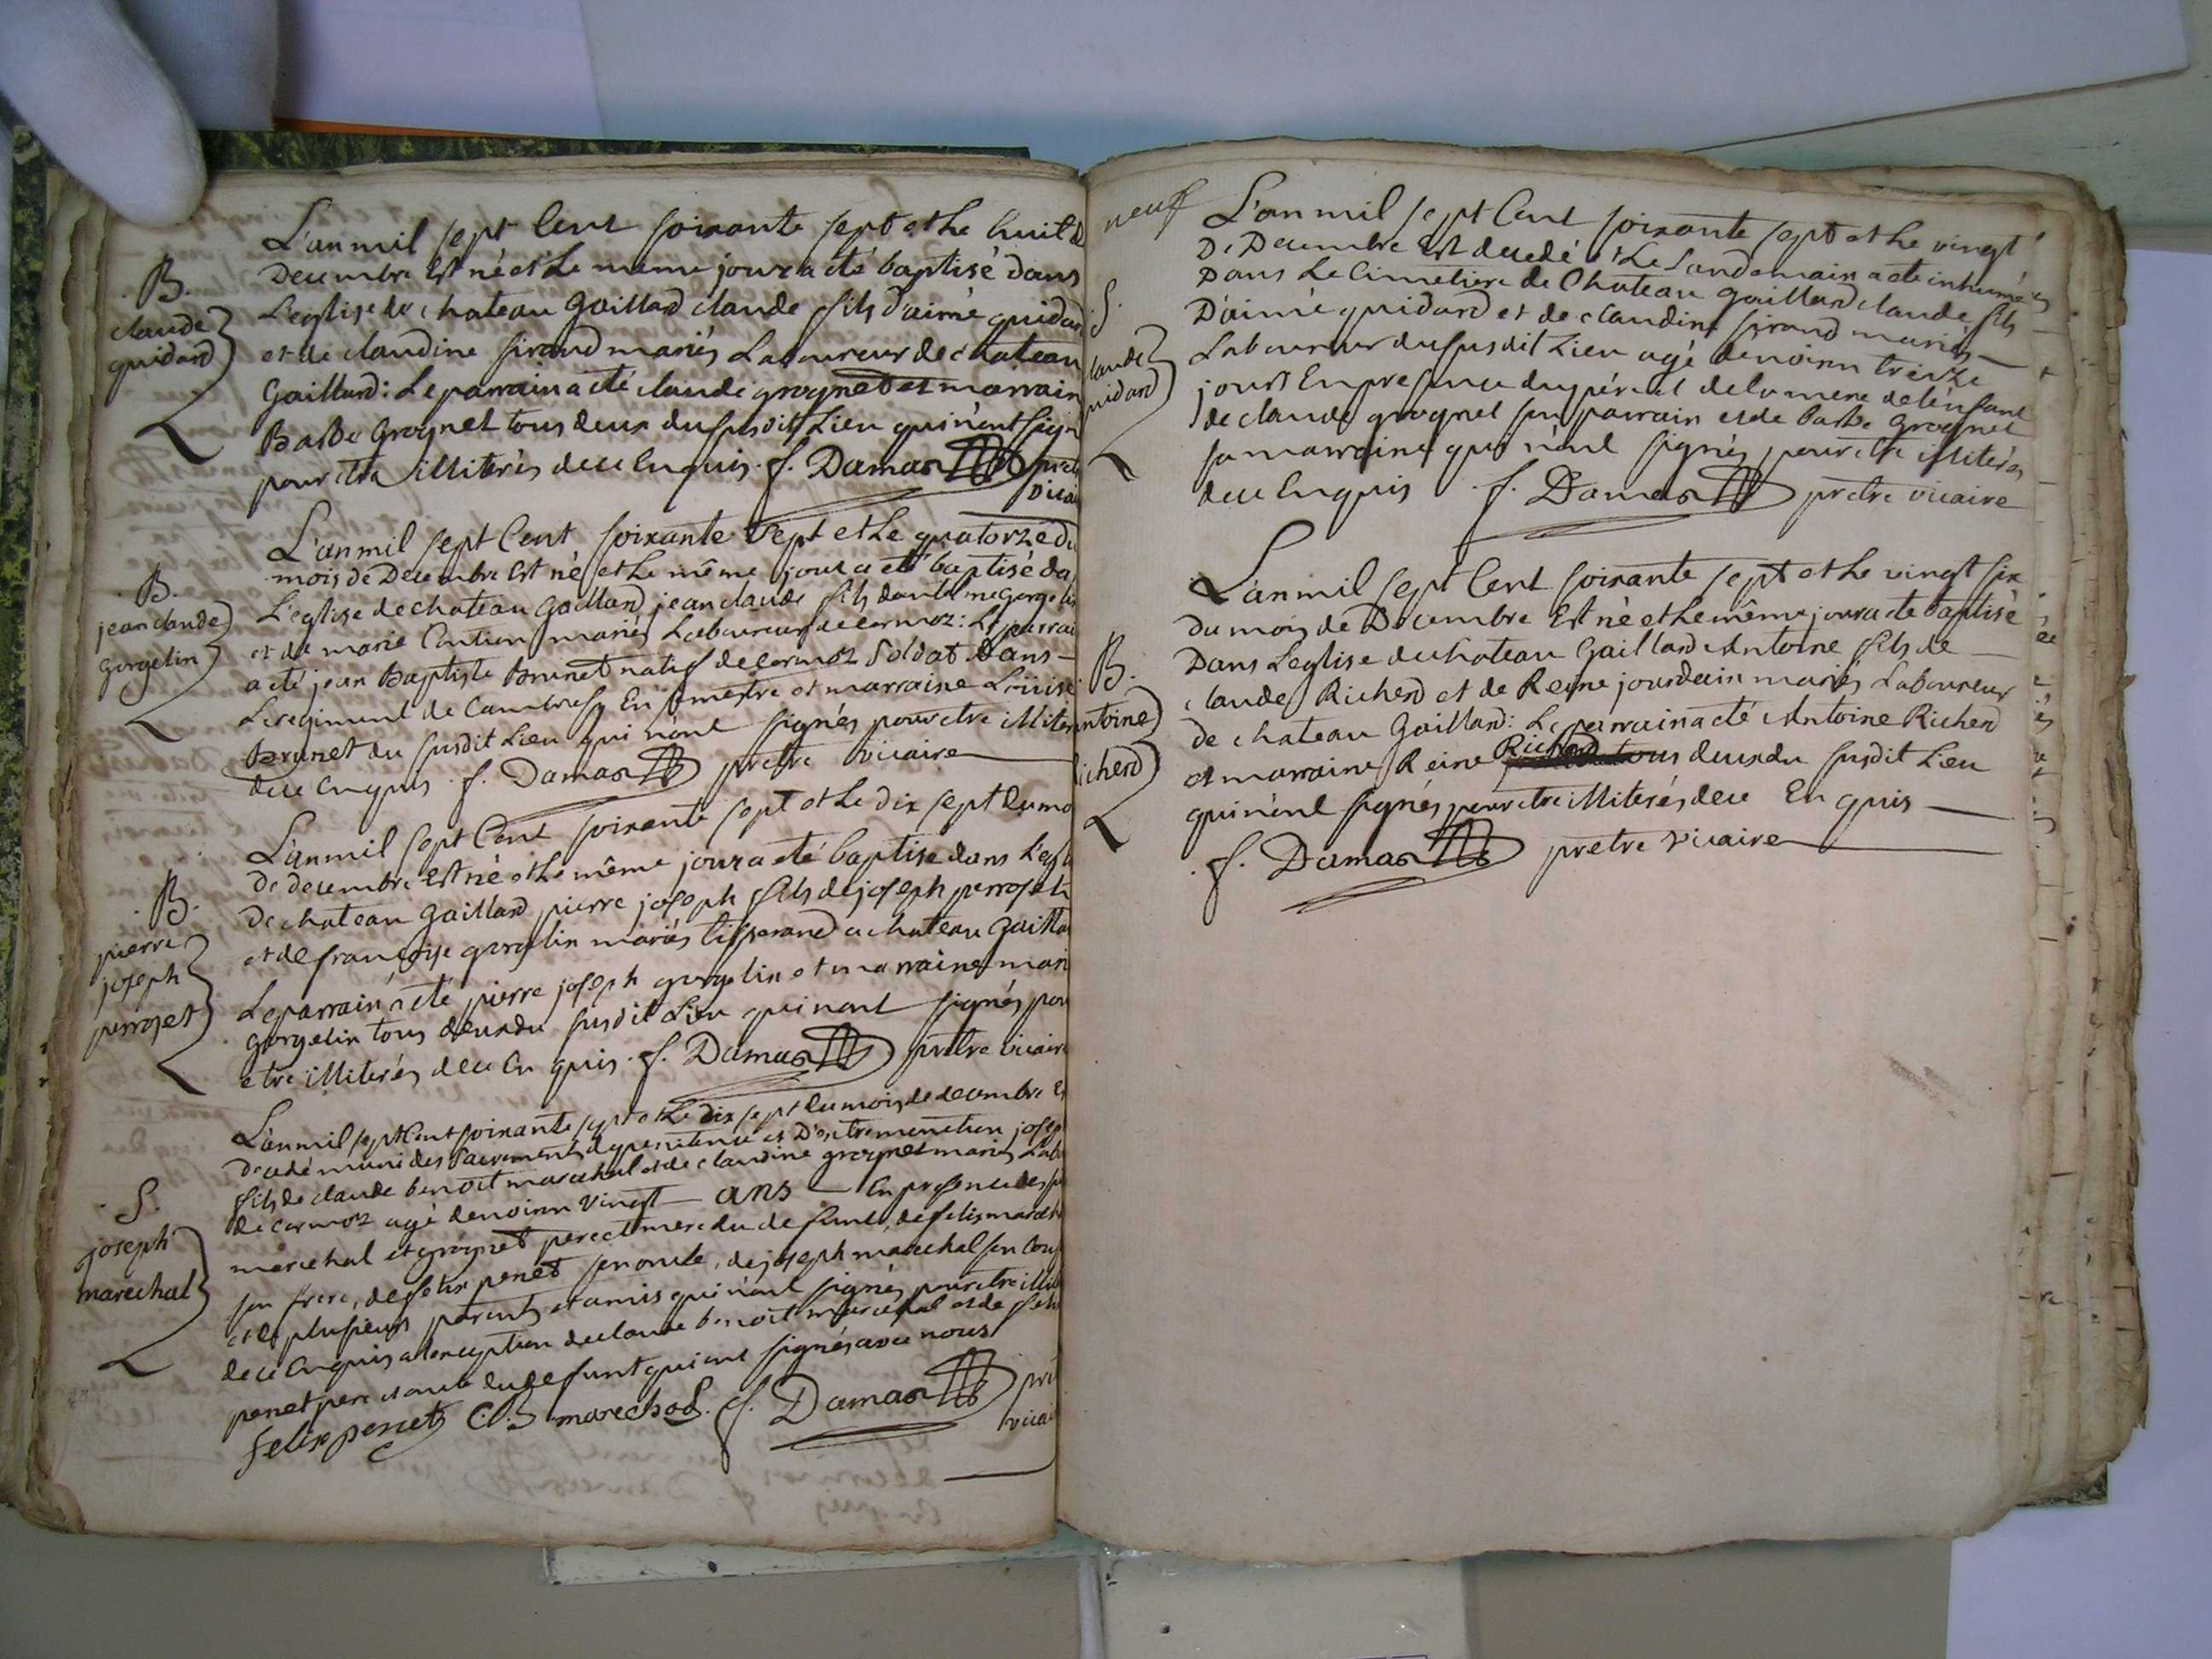 L'an mil sept Cent soixante sept et le huit de
Decembre Est né et Le meme jour a eté baptisé dans
L'eglise de chateau Gaillard claude fils d'aimé guidard
B.
claude
guidard
et de claudine sirand mariés Laboureur de chateau
Gaillard: Le parrain a eté claude grognet et marrain
Barbe Grognet tous deux du susdit Lieu qui n'ont sign
pour etre illiterés de ce Enquis. f. Damas pretre
vicai
L'an mil sept Cent soixante sept et Le quatorze du
mois de Decembre Est né et Le même jour a eté baptisé da
L'eglise de chateau Gaillard jean claude fils
B.
jean claude
gorgelin
et de marie mariés Laboureur de cormoz: Le parrai
a eté jean Baptiste Brunet natif de cormoz Soldat Dans
Le regiment de Cambresy En semestre et marraine Loüise
Brunet du susdit Lieu qui n'ont signés pour etre illiter
de ce enquis f. Damas pretre vicaire
L'an mil sept Cent soixante sept et Le dix sept du mo
de decembre Est né et Le même jour a eté baptisé dans L'egl
de chateau Gaillard pierre joseph fils de joseph perroset
B.
pierre
joseph
perroset
et de françoise gorgelin mariés tisserand a chateau Gailla
Le parrain a eté pierre joseph gorgelin et marraine mari
gorgelin tous deux du susdit Lieu qui n'ont signés pou
etre illiterés de ce Enquis. f. Damas pretre vicaire
L'an mil sept Cent soixante sept et Le dix sept du mois de decembre Es
decedé muni des Sacrements de penitence et D'extremonction josep
fils de claude benoit marechal et de claudine grognet mariés Labo
S.
joseph
marechal
de cormoz agé d'environ vingt ans En presence des
marechal et grognet pere et mere du defunt, de felix marech
son frere, de felix penet son oncle, de joseph marechal son cous
et de plusieurs parents et amis qui n'ont signés pour etre illit
de ce Enquis a l'exception de claude benoit marechal et de feli
penet pere et oncle du defunt qui ont signés avec nous
felix penet C. B. marechal. f. Damas pré
vicai
neuf
L'an mil sept Cent soixante sept et Le vingt
De Decembre Est decedé et Le Landemain a eté inhumé
Dans Le Cimetiere de Chateau Gaillard claude fils
S.
laude
uidard
D'aimé guidard et de claudine sirand mariés
Laboureur du susdit Lieu agé d'environ treize
jours En presence du pére et de la mere de l'enfant
de claude grognet son parrain et de barbe grognet
sa marraine qui n'ont signés pour etre illiterés
de ce Enquis f. Damas pretre vicaire
L'an mil sept Cent soixante sept et Le vingt six
du mois de Decembre Est né et Le même jour a eté baptisé
Dans L'eglise de chateau Gaillard Antoine fils de
B.
antoine
Richerd
claude Richerd et de Reine jourdain mariés Laboureur
de chateau Gaillard: Le parrain a eté Antoine Richerd
et marraine Reine Richerd tous deux du susdit Lieu
qui n'ont signés pour etre illiterés de ce Enquis
f. Damas pretre vicaire